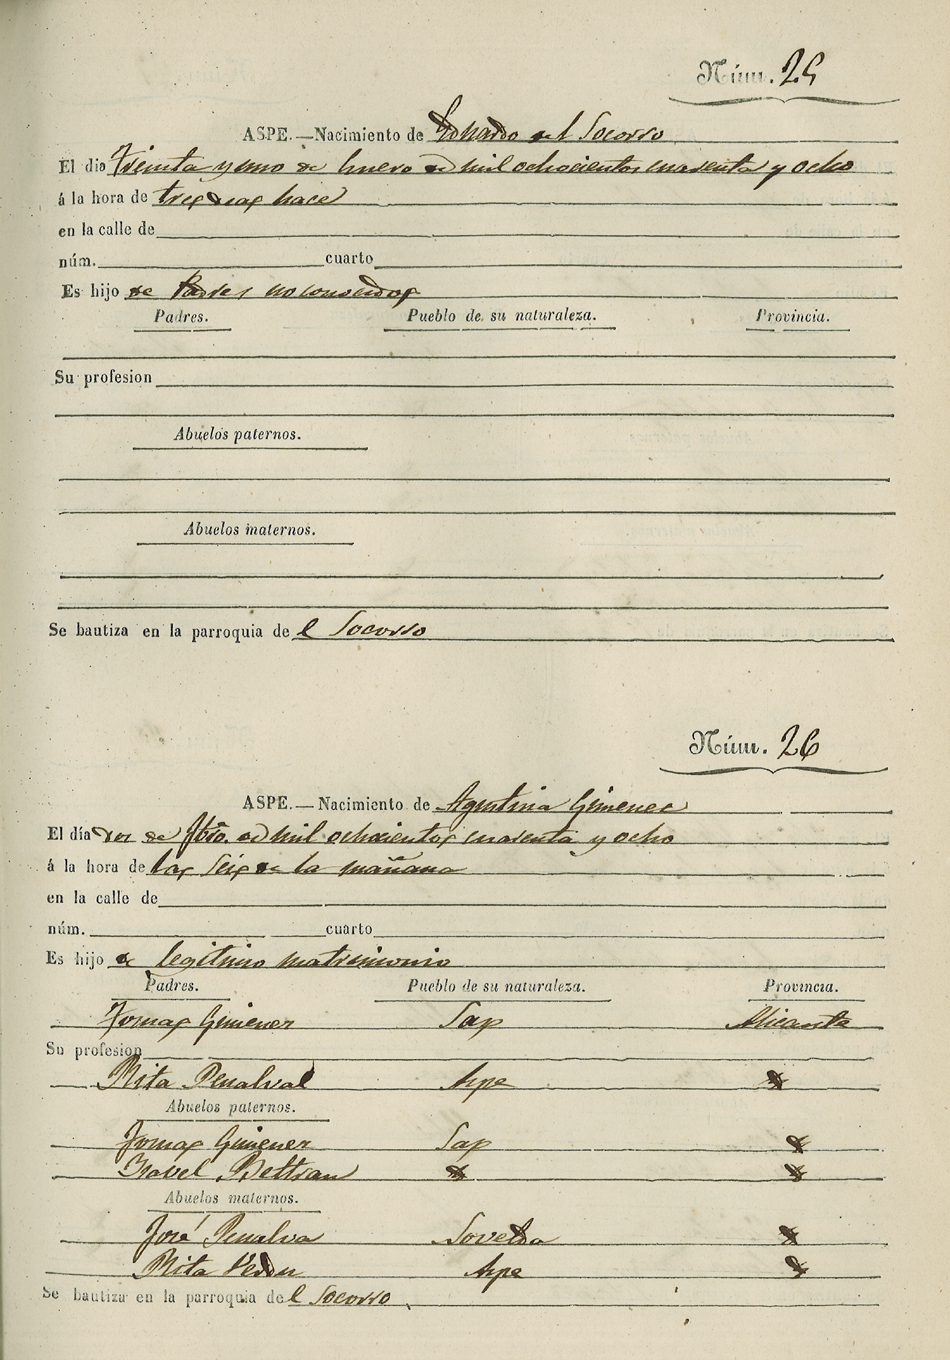 Núm. 25
ASPE.—Nacimiento de Eduardo del Socorro
El dia Treinta y uno de Enero de mil ochocientos cuarenta y ocho
á la hora de tres dias hace
en la calle de
núm. cuarto
Es hijo de Padres no conocidos
Padres. Pueblo de su naturaleza. Provincia.
Su profesion
Abuelos paternos.
Abuelos maternos.
Se bautiza en la parroquia de l Socorro
Núm. 26
ASPE.—Nacimiento de Agustina Gimenez
El día dos de Fbro. de mil ochocientos cuarenta y ocho
á la hora de las seis de la mañana
en la calle de
núm. cuarto
Es hijo de legitimo matrimonio
Padres. Pueblo de su naturaleza. Provincia.
Tomas Gimenez Sax Alicante
Su profesion
Rita Penalva Aspe
Abuelos paternos.
Tomas Gimenez Sax
Isavel Beltran
Abuelos maternos.
José Penalva Novelda
Rita Aspe
Se bautiza en la parroquia de l Socorro